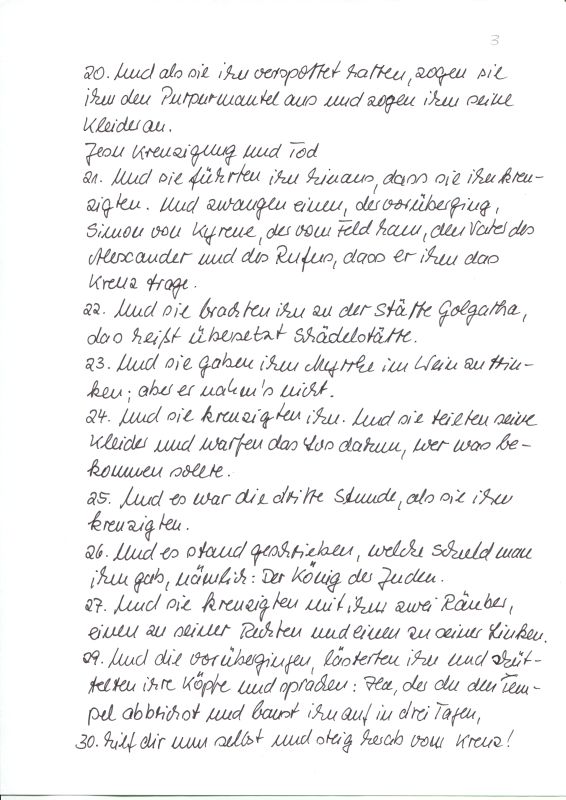 3
20. Und als sie ihn verspottet hatten, zogen sie
ihm den Purpurmantel aus und zogen ihm seine
Kleider an.
Jesu Kreuzigung und Tod
21. Und sie führten ihn hinaus, dass sie ihn kreu-
zigten. Und zwangen einen, der vorüberging,
Simon von Kyrene, der vom Feld kam, den Vater des
Alexander und des Rufus, dass er ihm das
Kreuz trage.
22. Und sie brachten ihn zu der Stätte Golgatha,
das heißt übersetzt Schädelstätte.
23. Und sie gaben ihm Myrrhe im Wein zu trin-
ken; aber er nahm's nicht.
24. Und sie kreuzigten ihn. Und sie teilten seine
Kleider und warfen das Los darum, wer was be-
kommen sollte.
25. Und es war die dritte Stunde, als sie ihn
kreuzigten.
26. Und es stand geschrieben, welche Schuld man
ihm gab, nämlich: Der König der Juden.
27. Und sie kreuzigten mit ihm zwei Räuber,
einen zu seiner Rechten und einen zu seiner Linken.
29. Und die vorübergingen, lästerten ihn und schüt-
telten ihre Köpfe und sprachen: Ha, der du den Tem-
pel abbrichst und baust ihn auf in drei Tagen,
30. hilf dir nun selbst und steig herab vom Kreuz!